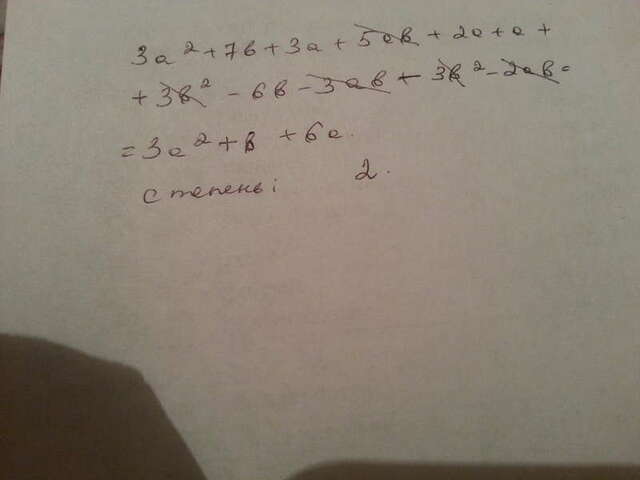 3a² + 7в + 3a + 5aв + 2a + a +
+ 3в² - 6в - 3aв - 3в² - 2aв =
= 3a² + в + 6a.
степень: 2.